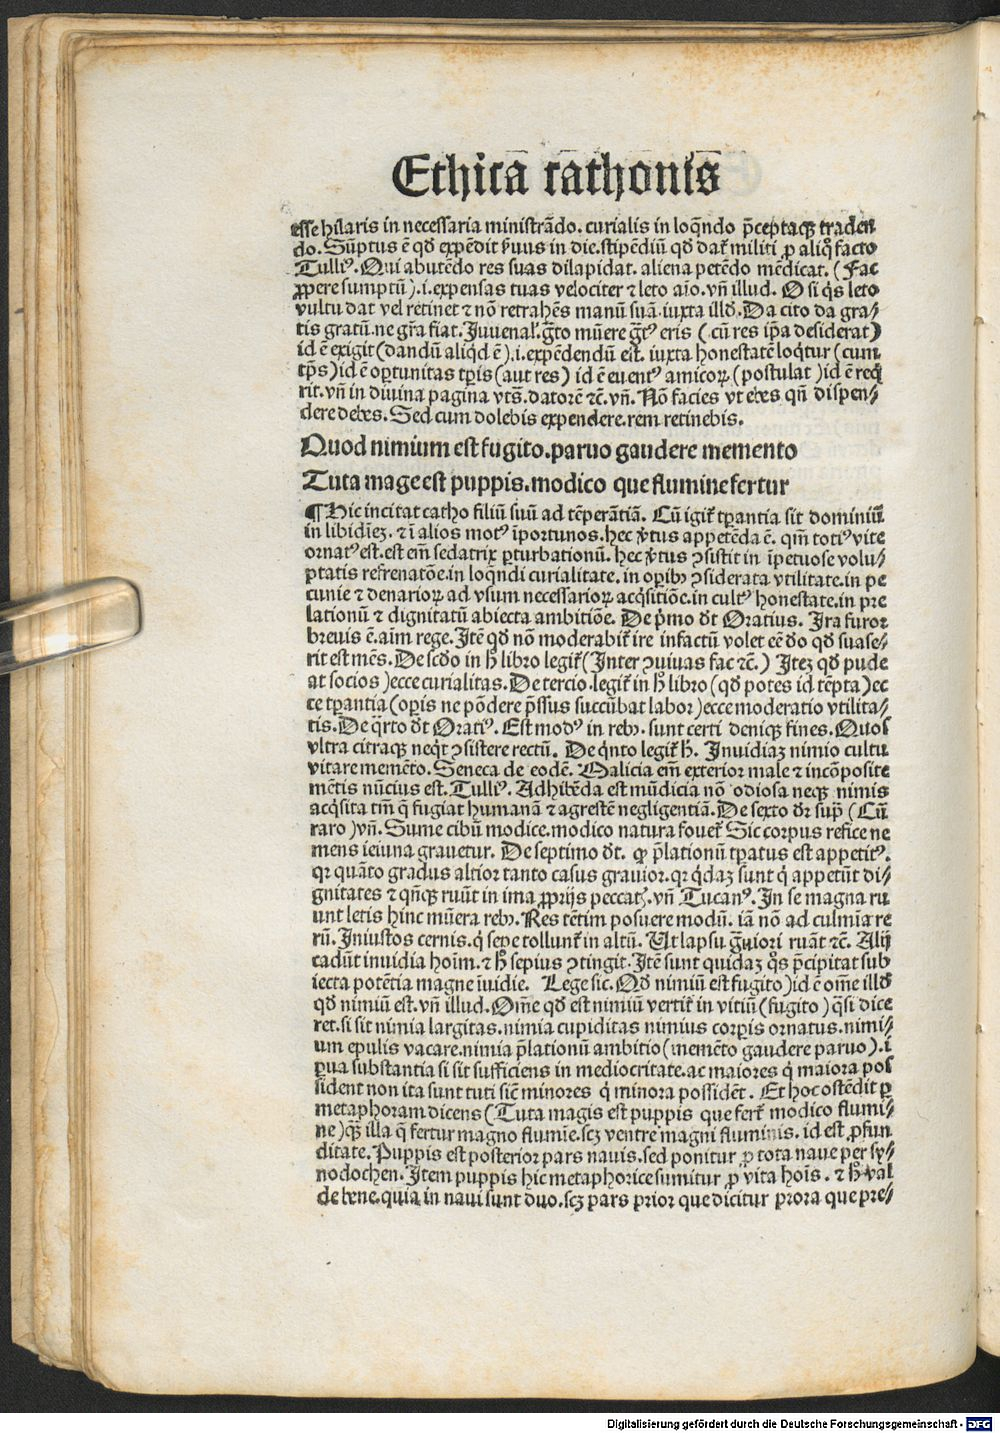 Ethica cathonis
esse hilaris in necessaria ministrādo. curialis in loq̄ndo p̄ceptaqȝ traden
do. Sūptus ē qd̄ expēdit vnus in die. stipēdiū qd̄ dat̄ militi ꝓ aliq̄ facto
Tulliꝰ. Qui abutēdo res suas dilapidat. aliena petēdo mēdicat. (Fac
ꝓpere sumptū).i. expensas tuas velociter ⁊ leto aīo. vn̄ illud. O si q̇s leto
vultu dat vel retinet ⁊ nō retrahēs manū suā. iuxta illd̄. Da cito da gra⸗
tis gratū. ne gr̄a fiat. Juuenal̓. g̊to mūere g̊tꝰ eris (cū res ip̄a desiderat)
id ē exigit (dandū aliqd ē).i. expēdendū est. iuxta honestatē loq̇tur (cum
tp̄s) id ē oꝑtunitas tꝑis (aut res) id ē euentꝰ amicoꝝ (postulat) id ē req̇
rit. vn̄ in diuina pagina vts̄. datorē ⁊c̄. vn̄. Nō facies vt ebes qn̄ dispen⸗
dere debes. Sed cum dolebis expendere. rem retinebis.
Quod nimium est fugito. paruo gaudere memento
Tuta mage est puppis. modico que flumine fertur
¶ Hic incitat catho filiū suū ad tēperātiā. Cū igit̄ tꝑantia sit dominiū
in libidīeȝ. ⁊ ī alios motꝰ īportunos. hec v̓tus appetēda ē. qm̄ totiꝰ vite
ornatꝰ est. est em̄ sedatrix ꝑturbationū. hec v̓tus ꝯsistit in īpetuose volu⸗
ptatis refrenatōe. in loq̄ndi curialitate. in oꝑibꝫ ꝯsiderata vtilitate. in pe
cunie ⁊ denarioꝝ ad vsum necessarioꝝ acq̇sitiōe. in cultꝰ honestate. in pre
lationū ⁊ dignitatū abiecta ambitiōe. De p̓mo dt̄ Oratius. Ira furor
breuis ē. aīm rege. Itē qd̄ nō moderabit̄ ire infactū volet eē do qd̄ suase⸗
rit est mēs. De scd̄o in h̄ libro legit̄ (Inter ꝯuiuas fac ⁊c̄.) Iteȝ qd̄ pude
at socios) ecce curialitas. De tercio. legit̄ in h̄ libro (qd̄ potes id tēpta) ec
ce tꝑantia (oꝑis ne pōdere p̄ssus succūbat labor) ecce moderatio vtilita⸗
tis. De q̊rto dt̄ Oratiꝰ. Est modꝰ in rebꝫ. sunt certi deniqȝ fines. Quos
vltra citraqȝ neq̇t ꝯsistere rectū. De q̇nto legit̄ h̄. Inuidiaȝ nimio cultu
vitare memēto. Seneca de eodē. Malicia em̄ exterior male ⁊ incōposite
mētis nūcius est. Tulliꝰ. Adhibēda est mūdicia nō odiosa neqȝ nimis
acq̇sita tm̄ q̄ fugiat humanā ⁊ agrestē negligentiā. De sexto dr̄ supͣ (Cū
raro) vn̄. Sume cibū modice. modico natura fouet̄ Sic corpus refice ne
mens ieiuna grauetur. De septimo dt̄. qꝙ p̄lationū tꝑatus est appetitꝰ.
qꝛ quāto gradus altior tanto casus grauior. qꝛ q̇daȝ sunt q̇ appetūt di⸗
gnitates ⁊ qn̄cqȝ ruūt in ima ꝓprijs peccat̓. vn̄ Lucanꝰ. In se magna ru
unt letis hinc mūera rebꝫ. Res tētim posuere modū. iā nō ad culmīa re
rū. Iniustos cernis. q̇ sepe tollunt̄ in altū. Ut lapsu g̊uiori ruāt ⁊c̄. Alij
cadūt inuidia hoīm. ⁊ h̄ sepius ꝯtingit. Itē sunt quidaȝ q̊s p̄cipitat sub
iecta potētia magne īuidie. Lege sic. Qd̄ nimiū est fugito) id ē om̄e illd̄
qd̄ nimiū est. vn̄ illud. Om̄e qd̄ est nimiū vertit̄ in vitiū (fugito) q̊si dice
ret. si sit nimia largitas. nimia cupiditas nimius corꝑis ornatus. nimi⸗
um epulis vacare. nimia p̄lationū ambitio (memēto gaudere paruo).i
ꝑua substantia si sit sufficiens in mediocritate. ac maiores q̇ maiora pos
sident non ita sunt tuti sic̄ minores q̇ minora possidēt. Et hoc ostēdit ꝑ
metaphoram dicens (Tuta magis est puppis que fert̄ modico flumi⸗
ne) qȝ̄ illa q̄ fertur magno flumīe. scȝ ventre magni fluminis. id est ꝓfun
ditate. Puppis est posterior pars nauis. sed ponitur ꝓ tota naue per sy⸗
nodochen. Item puppis hic metaphorice sumitur ꝓ vita hoīs. ⁊ h̄ val
de bene. quia in naui sunt duo. scȝ pars prior que dicitur prora que pre⸗
Digitalisierung gefördert durch die Deutsche Forschungsgemeinschaft - DFG